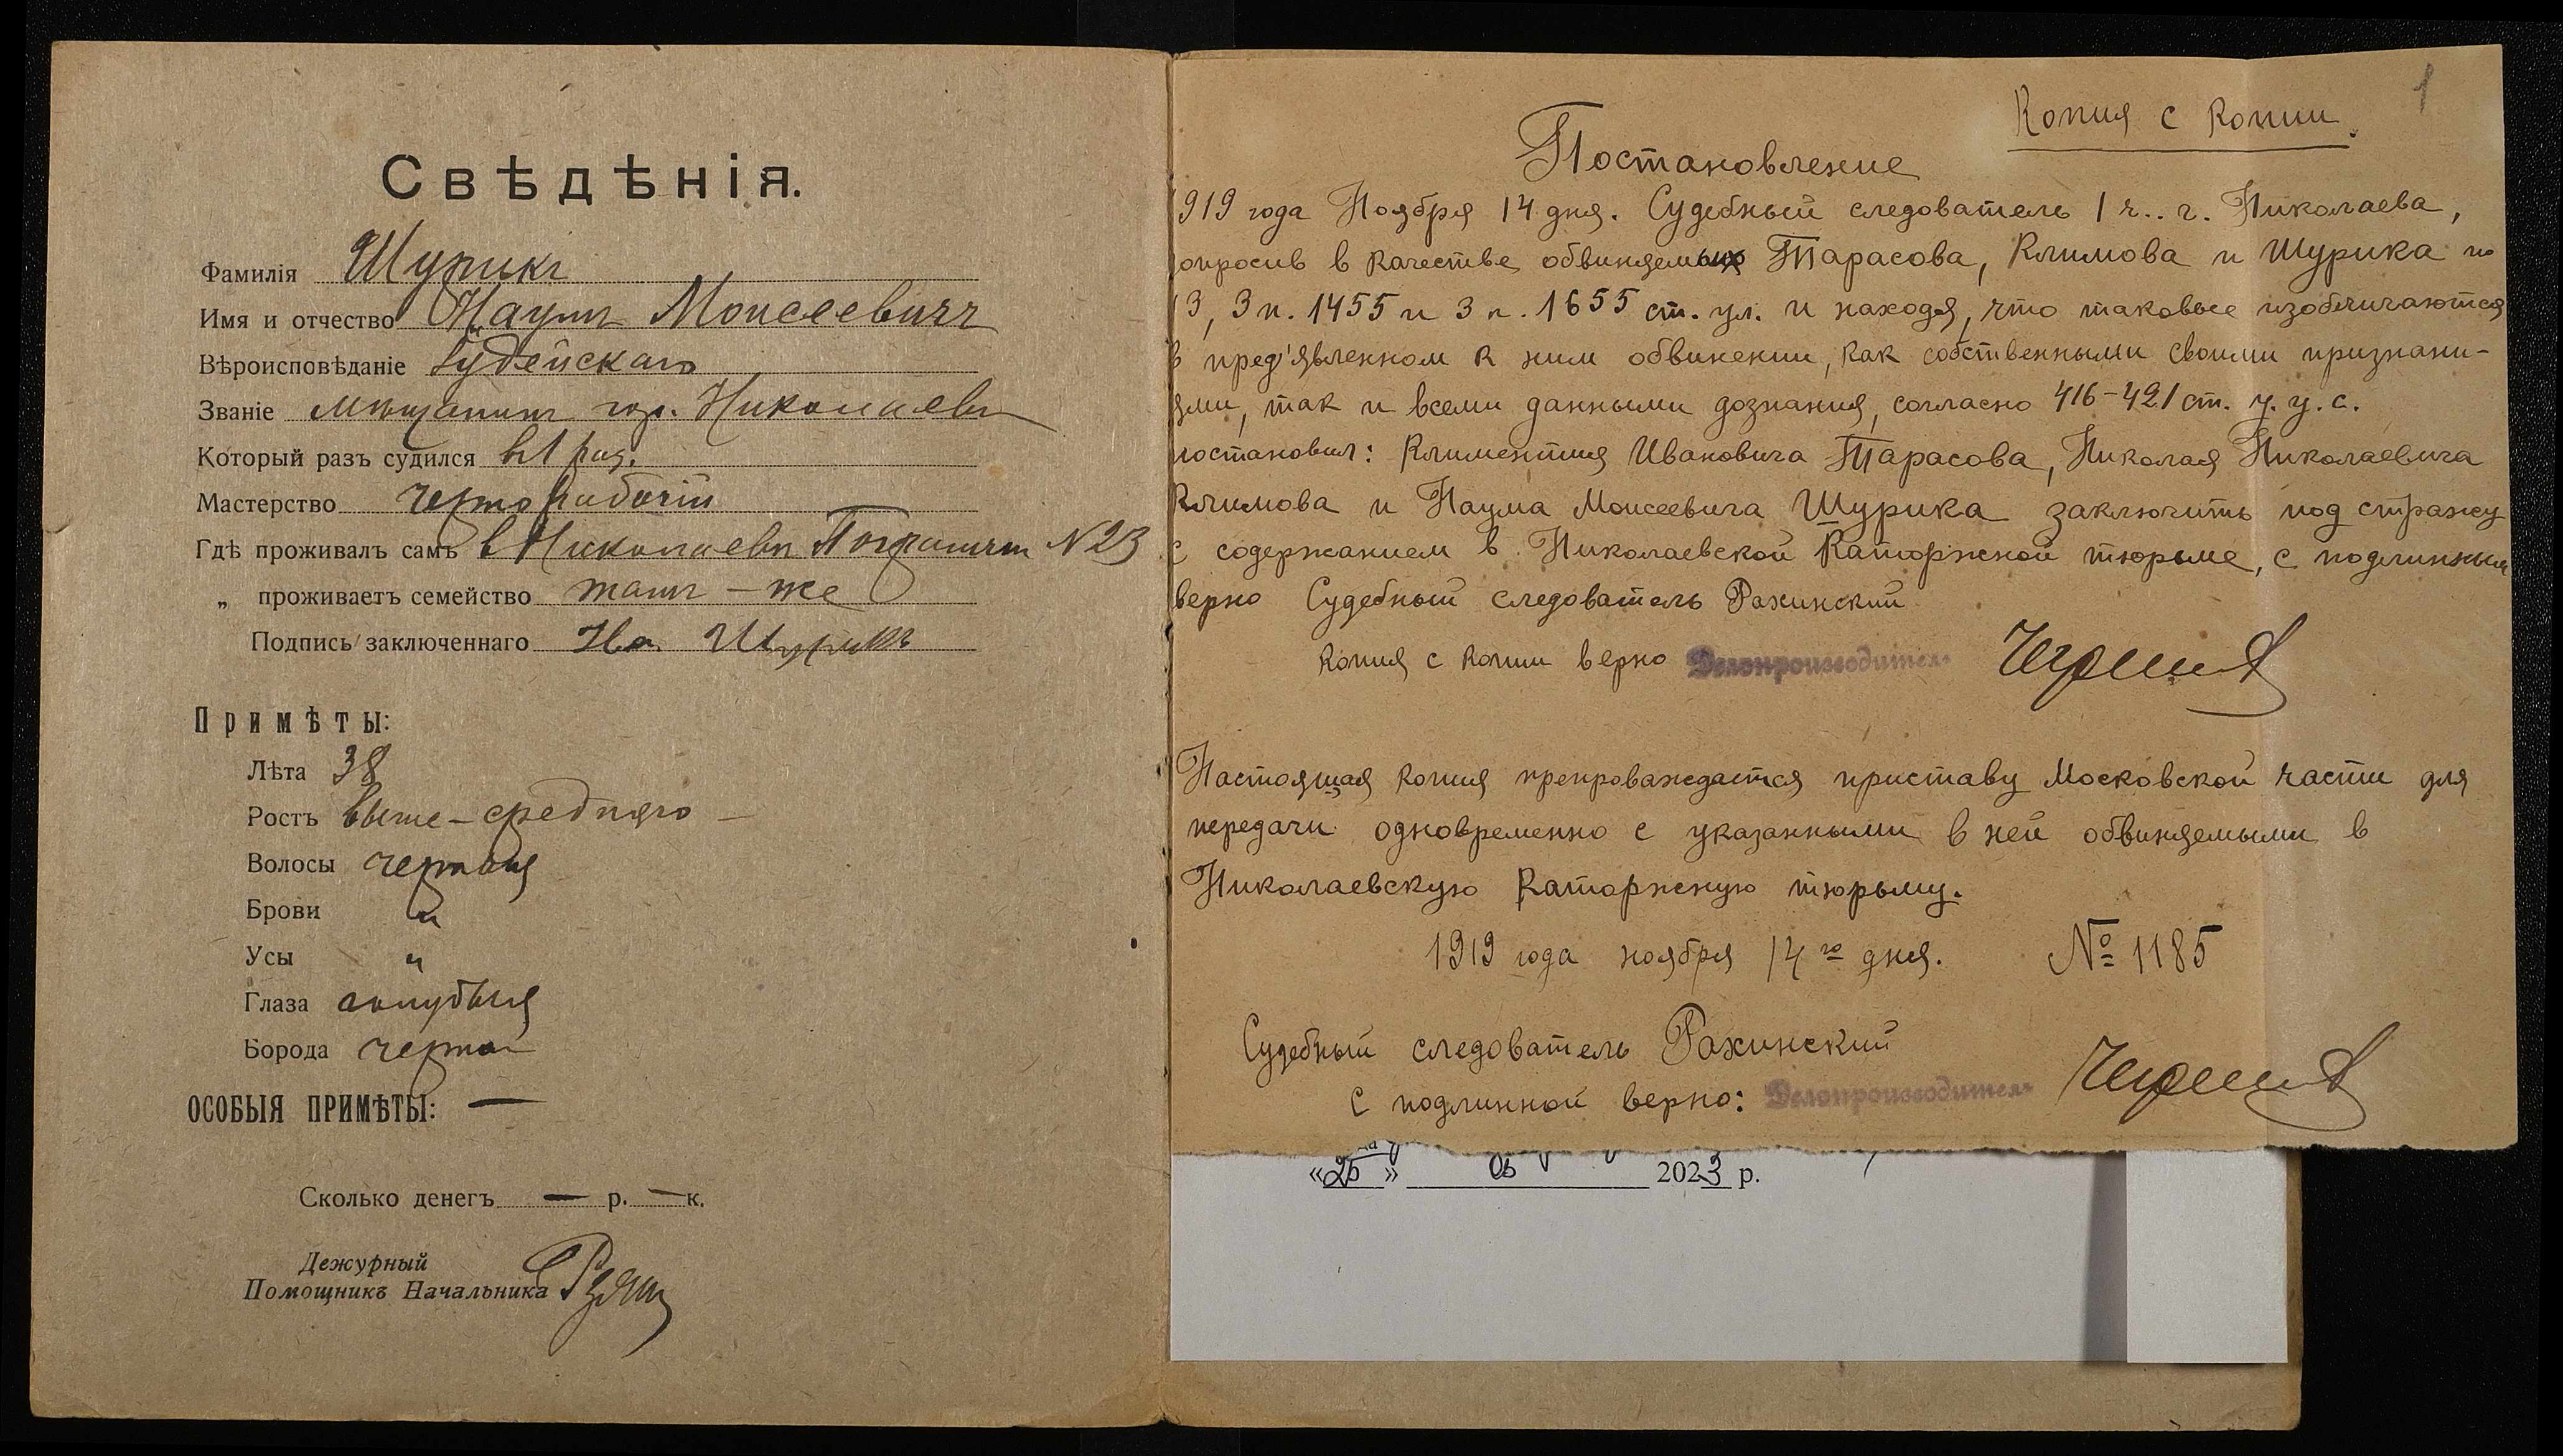 Свѣдѣнія.
Фамилія Шурикъ
Имя и отчество Наумъ Моисеевичъ
Вѣроисповѣданіе Іудейскаго
Званіе мѣщанинъ гор. Николаева
Который разъ судился въ 1 раз.
Мастерство чернорабочій
Гдѣ проживалъ самъ в Николаевѣ Погранич N 23
„ проживаетъ семейство тамъ – же
Подпись заключеннаго На. Шурикъ
Примѣты:
Лѣта 38
Ростъ выше – средняго
Волосы черныя
Брови "
Усы "
Глаза голубыя
Борода черная
ОСОБЫЯ ПРИМѢТЫ: —
Сколько денегъ — р. — к.
Дежурный
Помощникъ Начальника
1
Копия с копии.
Постановление
1919 года Ноября 14 дня. Судебный следователь 1 ч.. г. Николаева,
допросив в качестве обвиняемых Тарасова, Климова и Шурика по
13, 3 п. 1455 и 3 п. 1655 ст. ул. и находя, что таковые изобличаются
в пред'явленном к ним обвинении, как собственными своими признани-
ями, так и всеми данными дознания, согласно 416–421 ст. у. у. с.
постановил: Климентия Ивановича Тарасова, Николая Николаевича
Климова и Наума Моисеевича Шурика заключить под стражу
с содержанием в Николаевской Каторжной тюрьме, с подлинным
верно Судебный следователь Рахинский
Копия с копии верно Делопроизводитель
Настоящая копия препровождается приставу Московской части для
передачи одновременно с указанными в ней обвиняемыми в
Николаевскую Каторжную тюрьму.
1919 года ноября 14го дня. № 1185
Судебный следователь Рахинский
С подлинной верно: Делопроизводитель
«25» 05 2023 р.